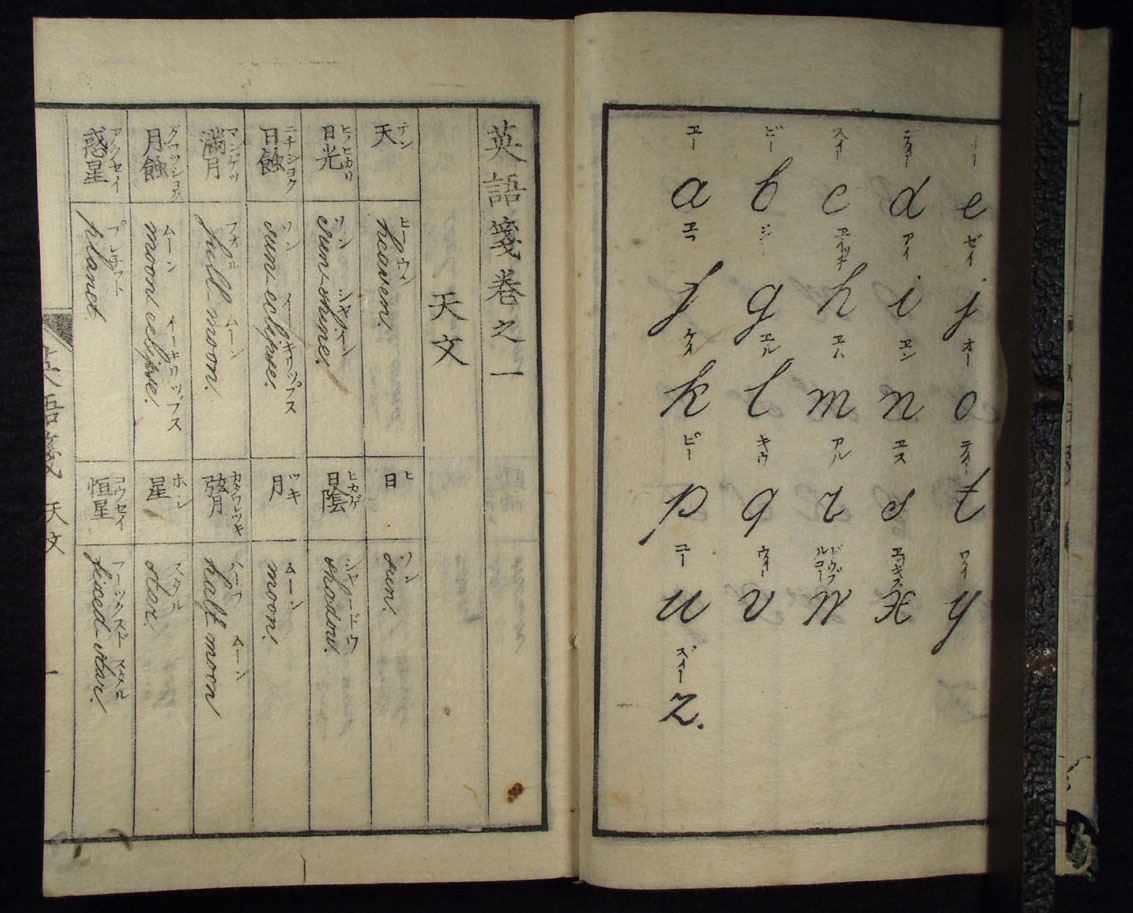 エー ビー スイー ティー イー
a b c d e
エフ ジー エイッチ アイ ゼイ
f g h i j
ケイ エル エム エン オー
k l m n o
ピー キウ アル エス ティー
p q r s t
ユー ウィー ドウブルユー エッキス ワイ
u v w x y
ズイー
z.
英語箋巻之一
天文
天 テン
heaven. ヒーウン
日 ヒ
sun. ソン
日光 ヒノヒカリ
sun-shine. ソン シャイン
日陰 ヒカゲ
shadow. シャードウ
日蝕 ニチショク
sun-eclipse. ソン イキリップス
月 ツキ
moon. ムーン
満月 マンゲツ
full-moon. ムーン
弦月 カタワレツキ
half moon ハーフ ムーン
月蝕 グワッショク
moon eclipse. ムーン イーキリップス
星 ホシ
star. スタル
惑星 ワクセイ
planet. プレネット
恒星 コウセイ
fixed-star. フィックスド スタル
英語箋 天文 一